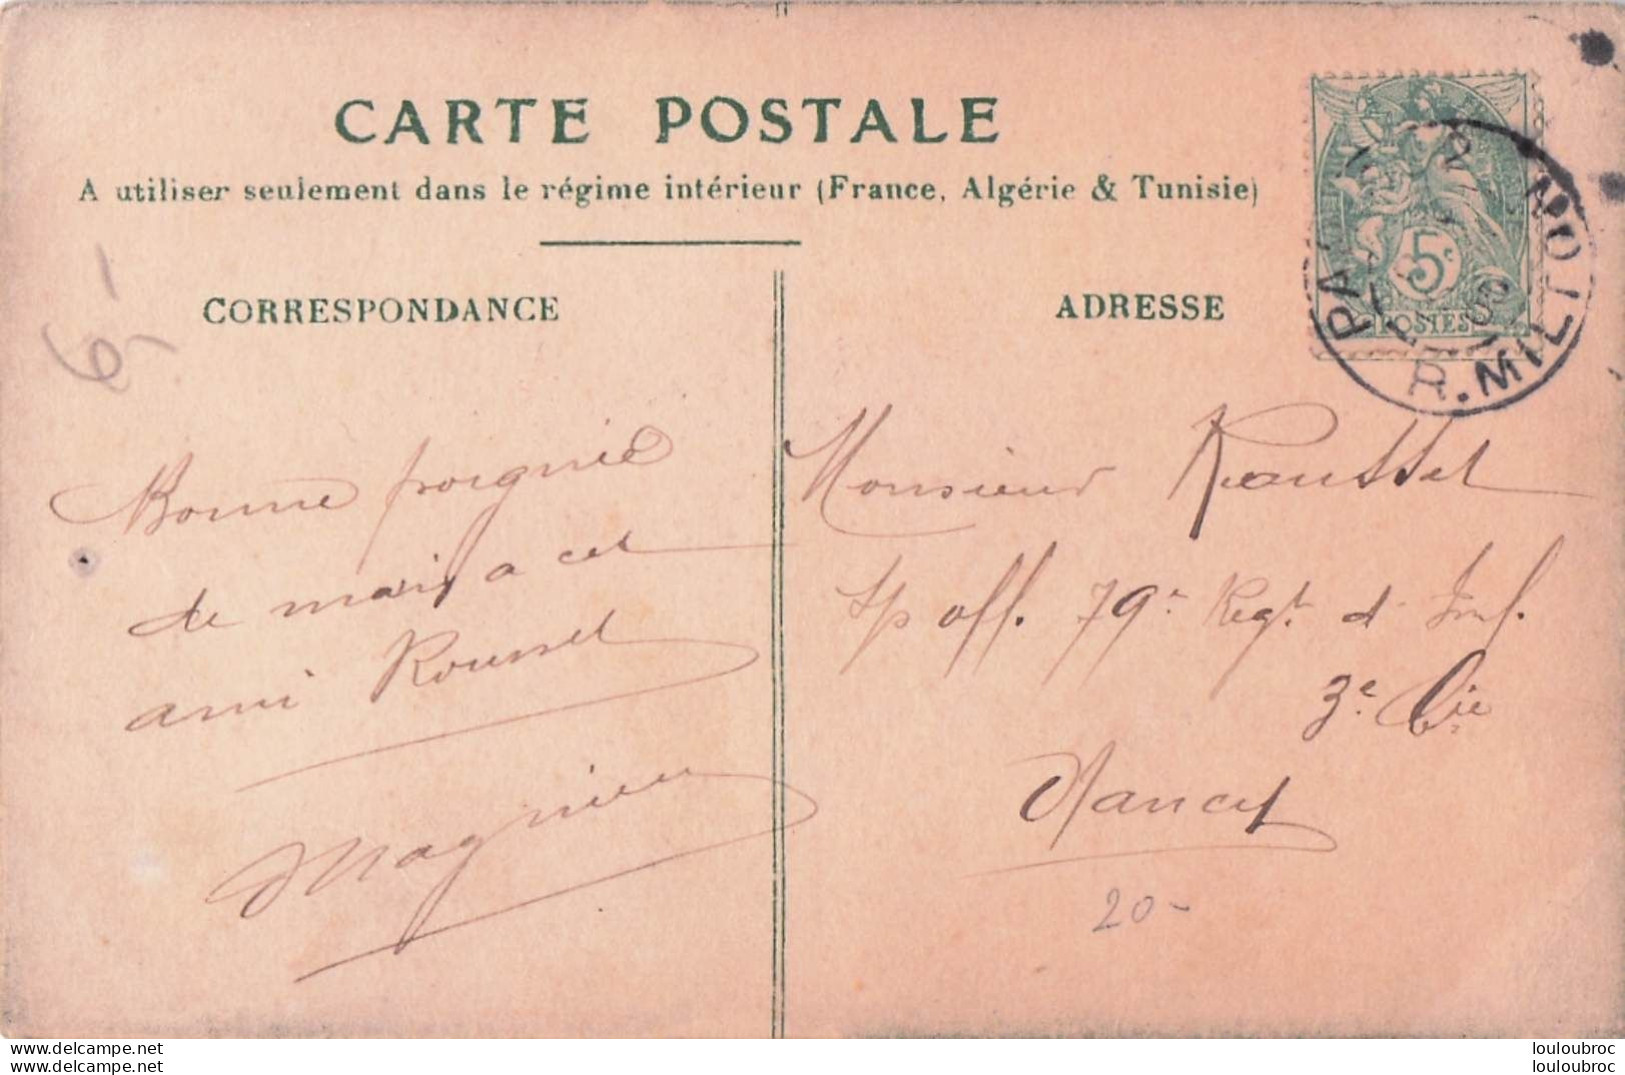 CARTE POSTALE
A utiliser seulement dans le régime intérieur (France, Algérie & Tunisie)
CORRESPONDANCE
ADRESSE
5c
POSTES
R. MILTON
6-
Bonne poignée
de main a cet
ami Roussel
Magnieu
Monsieur Roussel
Sp off. 79e Regt. d Inf.
3e Cie
Nancy
20-
louloubroc
louloubroc